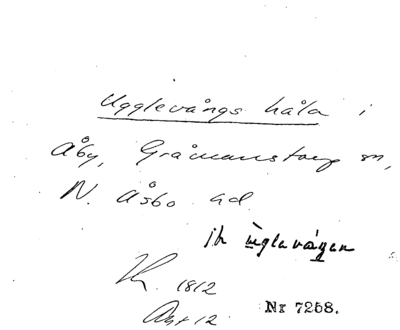 Ugglevångs håla i
Åby, Gråmanstorp sn,
N. Åsbo hd
ih ùglavágen
1812
Akt 12. Nr 7258.